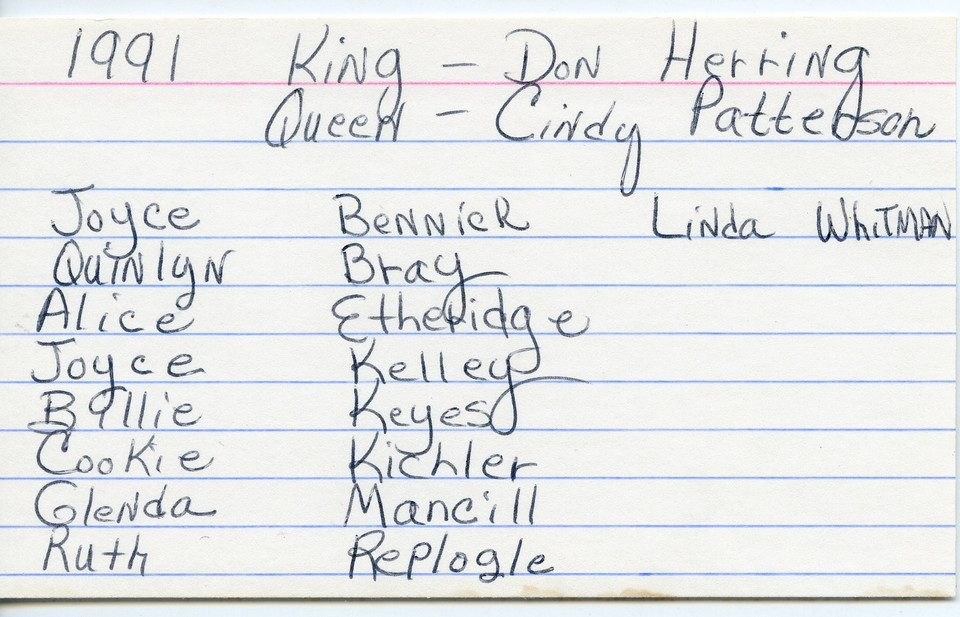 1991 King - Don Herring
Queen - Cindy Patterson
Joyce Bennick Linda Whitman
Quinlyn Bray
Alice Etheridge
Joyce Kelley
Billie Keyes
Cookie Kichler
Glenda Mancill
Ruth Replogle